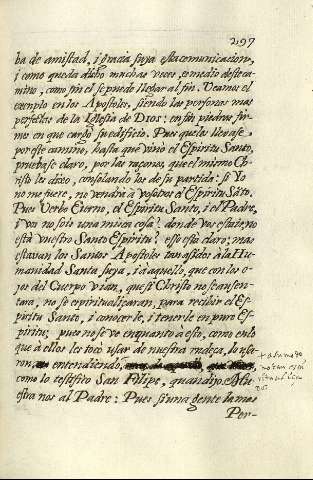 297
ba de amistad, i gracia suya esta comunicacion,
i como queda dicho muchas veces, con medio deste ca-
mino, como fin el se puede llegar al fin. Veamos el
exemplo en los Apostoles, siendo las personas mas
perfetas de la Iglesia de Dios: en fin piedras fir-
me en que cargò su edificio. Pues que los llevase
por este camino, hasta que vino el Espiritu Santo,
pruebase claro, por las razones, que el mismo Ch-
risto les dixo, consolandolos de su partida: si Yo
no me fuere, no vendrà a vosotros el Espiritu Sãto.
Pues Verbo Eterno, el Espiritu Santo, i el Padre,
i vn no sois una misma cosa? donde vos estais no
està vuestro Santo Espiritu? esso està claro; mas
estavan los Santos Apostoles tan asidos à la Hu-
manidad Santa suya, i à aquello, que con los o-
jos del Cuerpo vian, que si Christo no se ausen-
tara, no se espiritualizaran, para recibir el Es-
piritu Santo, i conocerle, i tenerle en puro Es-
piritu; pues no se ve en quanto à esto, como en lo
que à ellos les tocò usar de nuestra rudeça, lo usa-
ron, entendiendo,
como lo testifico San Filipe, quando dijo: Mu-
estra nos al Padre: Pues si una gente la mas
Per-